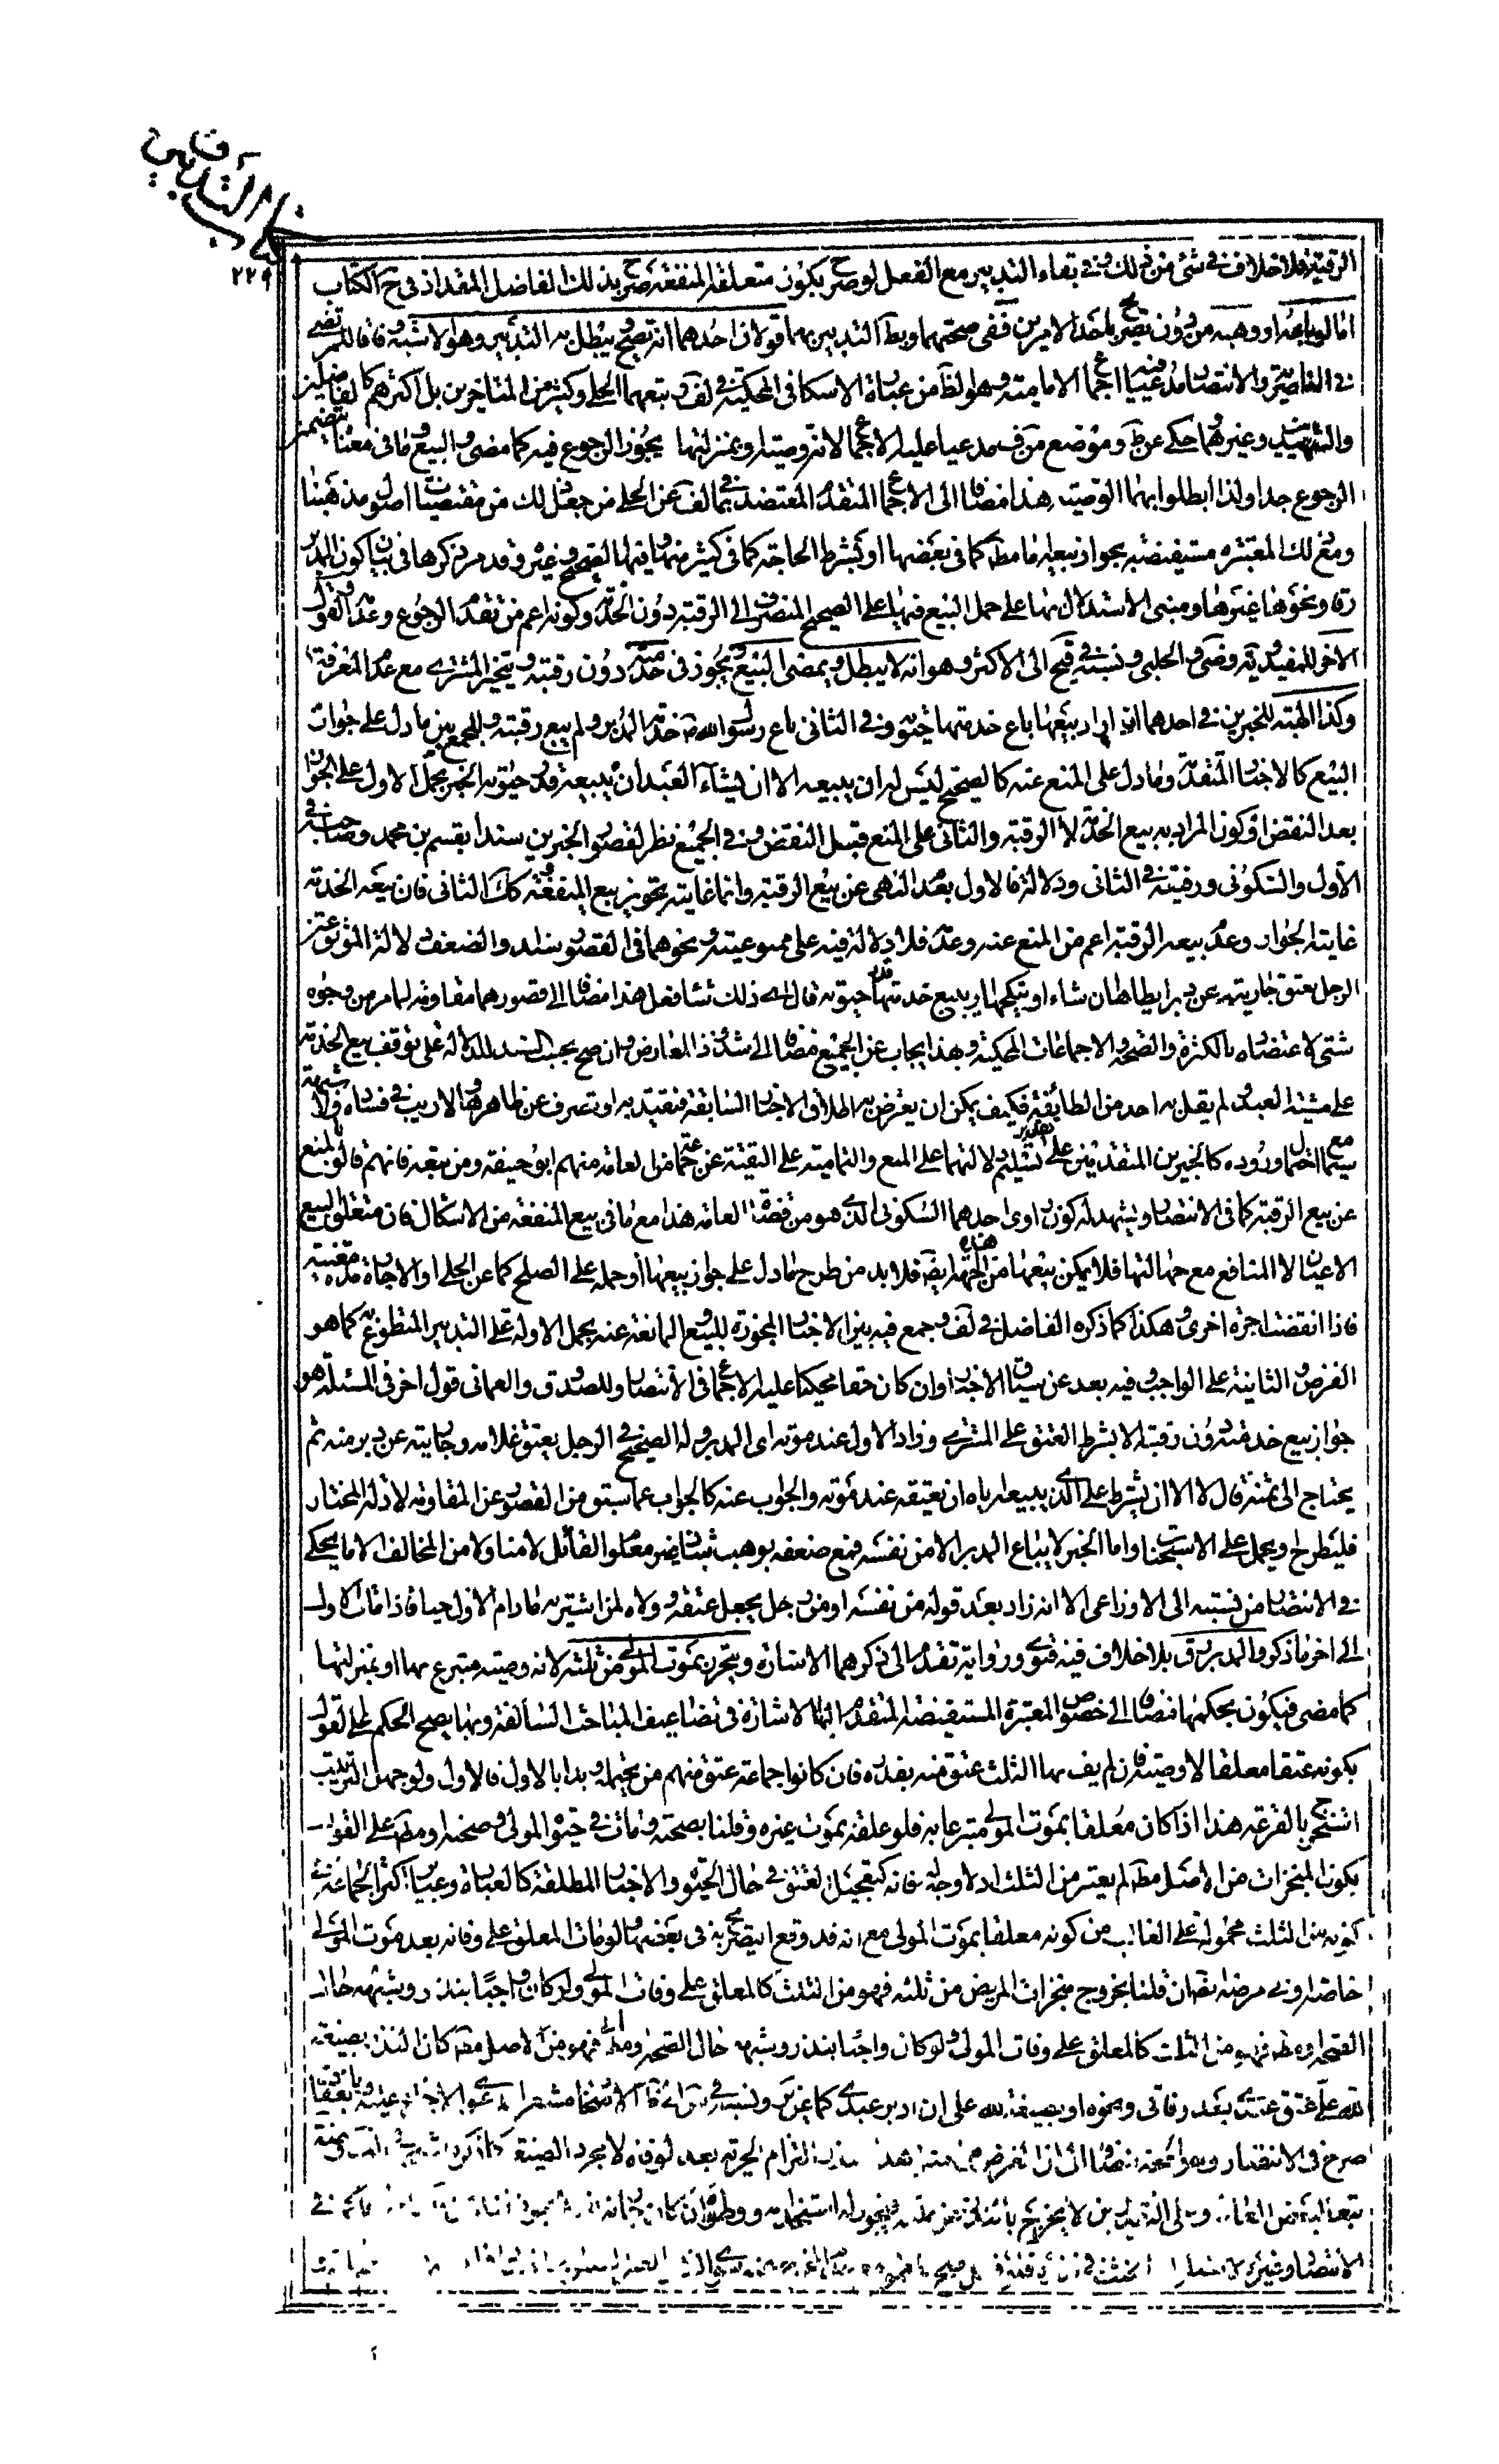 كتاب التدبير
٢٢٩
الرقبة فلا خلاف في شئ من ذلك وفي بقاء التدبير مع الفعل لو صرح بكون متعلقه المنفعة صرح بذلك الفاضل المقداد في ح الكتاب
اما لو باعه او وهبه من دون تصريح باحد الامرين ففي صحتهما وبط التدبير بهما قولان احدهما انه يصح ويبطل به التدبير وهو الاشبه وفاقا للمرتضى
في الناصرية والانتصار مدعيا فيه اجماع الامامية وهو لظ من عبارة الاسكافي المحكية في لف وتبعهما الحلي وكثير من المتاخرين بل اكثرهم كالفاضلين
والشهيدين وغيرهما وحكي عن ط وموضع من ف مدعيا عليه الاجماع لانه وصية او بمنزلتها يجوز الرجوع فيه كما مضى والبيع وما في معناه يتضمن
الرجوع جدا ولذا ابطلوا بهما الوصية هذا مضافا الى الاجماع المتقدم المعتضد بما في لف عن الحلي من جعل ذلك من مقتضيات اصول مذهبنا
ومع ذلك المعتبرة مستفيضة بجواز بيعه اما مط كما في بعضها او بشرط الحاجة كما في كثير منها وفيها الصحيح وغيره وقد مر ذكرها في بيان كون المدبر
رقا ونحوها غيرها ومبنى الاستدلال بها على حمل البيع فيها على الصحيح المنصرف الى الرقبة دون الخدمة وكونه اعم من تقدم الرجوع وعدمه والقول
الاخر للمفيد وية وضى والحلبي ونسبه في قيح الى الاكثر وهو انه لا يبطل ويمضى البيع ويجوز في خدمته دون رقبته ويتخير المشتري مع عدم المعرفة
وكذا الهبة للخبرين في احدهما ان اراد بيعها باع خدمتها حيوته وفي الثاني باع رسول الله ص خدمة المدبر ولم يبع رقبته وللجمع بين ما دل على جواز
البيع كالاخبار المتقدمة وما دل على المنع عنه كالصحيح ليس له ان يبيعه الا ان يشاء العبد ان يبيعه قدر حيوته الخبر بحمل الاول على الجواز
بعد النقض او كون المراد به بيع الخدمة لا الرقبة والثاني على المنع قبل النقض وفي الجميع نظر لقصور الخبرين سندا بقسم بن محمد وصاحبه في
الاول والسكوني ورفيقه في الثاني ودلالة فالاول بعدم النهي عن بيع الرقبة وانما غايته تجويز بيع المنفعة وكك الثاني فان بيعه الخدمة
غايته الجواز وعدم بيعه الرقبة اعم من المنع عنه وعدمه فلا دلالة فيه على ممنوعيته ونحوهما في القصور سندا والضعف دلالة الموثق عن
الرجل يعتق جاريته عن دبر ايطاها ان شاء او ينكحها او يبيع خدمتها قدر حيوته قال اي ذلك شاء فعل هذا مضافا الى قصورهما مقاومة لما مر من وجوه
شتى لاعتضاده بالكثرة والصحة والاجماعات المحكية وبهذا يجاب عن الجميع مضافا الى شذوذ المعارض وان صح بحسب السند للدلالة على توقف بيع الخدمة
على مشية العبد ولم يقل به احد من الطايفة فكيف يمكن ان يعترض به اطلاق الاخبار السابقة فتقيد به او تصرف عن ظاهرها ولا ريب في فساده ولا شبهة
سيما مع احتمال وروده كالخبرين المتقدمين على تقدير تسليم دلالتهما على المنع والتمامية على التقية عن جماعة من العامة منهم ابو حنيفة ومن تبعه فانهم قالوا بالمنع
عن بيع الرقبة كما في الانتصار ويشهد له كون راوي احدهما السكوني الذي هو من قضاة العامة هذا مع ما في بيع المنفعة من الاشكال فان متعلق البيع
الاعيان لا المنافع مع جهالتها فلا يمكن بيعها من هذه الجهة ايضا فلا بد من طرح ما دل على جواز بيعها او حمله على الصلح كما عن الحلي او الاجارة مدة معينة
فاذا انقضت اجره اخرى وهكذا كما ذكره الفاضل في لف وجمع فيه بين الاخبار المجوزة للبيع والمانعة عنه بحمل الاولة على التدبير المتطوع به كما هو
الفرض والثانية على الواجب وفيه بعد عن سياق الاخبار وان كان حقا محكيا عليه الاجماع في الانتصار وللصدوق والعماني قول اخر في المسئلة هو
جواز بيع خدمته دون رقبته الا بشرط العتق على المشتري وزاد الاول عند موته اي المدبر وله الصحيح في الرجل يعتق غلامه وجاريته عن دبر منه ثم
يحتاج الى ثمنه قال لا الا ان يشرط على الذي يبيعه اياه ان يعتقه عند موته والجواب عنه كالجواب عما سبق من القصور عن المقاومة لادلة المختار
فليطرح ويحمل على الاستحباب واما الخبر لا يباع المدبر الا من نفسه فمع ضعفه بوهب شاذ غير معلوم القائل لا منا ولا من المخالف الا ما يحكى
في الانتصار من نسبته الى الاوزاعي الا انه زاد بعد قوله من نفسه او من رجل يجعل عتقه وولاه لمن اشتريه ما دام الاول حيا فاذا مات الاول
الى اخر ما ذكر والمدبر رق بلا خلاف فيه فتوى ورواية تقدم الى ذكرهما الاشارة ويتحرر بموت المولى من ثلثه لانه وصية متبرع بها او بمنزلتها
كما مضى فيكون بحكمها مضافا الى خصوص المعتبرة المستفيضة المتقدم اليها الاشارة في تضاعيف المباحث السالفة وبها يصح الحكم على القول
بكونه عتقا معلقا لا وصية فان لم يف بها الثلث عتق منه بقدره فان كانوا جماعة عتق منهم من يحتمله وبدا بالاول فالاول ولو جهل الترتيب
استخرج بالقرعة هذا اذا كان معلقا بموت المولى متبرعا به فلو علقه بموت غيره وقلنا بصحته ومات في حيوة المولى وصحته او مط على القول
بكون المنجزات من الاصل مط لم يعتبر من الثلث اذ لا وجه له فانه كتعجيل العتق في حال الحيوة والاخبار المطلقة كالعبارة وعبارات اكثر الجماعة في
كونه من الثلث محمولة على الغالب من كونه معلقا بموت المولى مع انه قد وقع التصريح به في بعضها ولو مات المعلق على وفاته بعد موت المولى
خاصة او في مرضه ايضا ان قلنا بخروج منجزات المريض من ثلثه فهو من الثلث كالمعلق على وفات المولى ولو كان واجبا بنذر وشبهه حال
الصحة او مط فهو من الثلث كالمعلق على وفات المولى ولو كان واجبا بنذر وشبهه حال الصحة او مط فهو من الاصل مط كان النذر بصيغة
لله علي عتق عبدي بعد وفاتي ونحوه او بصيغة لله علي ان ادبر عبدي